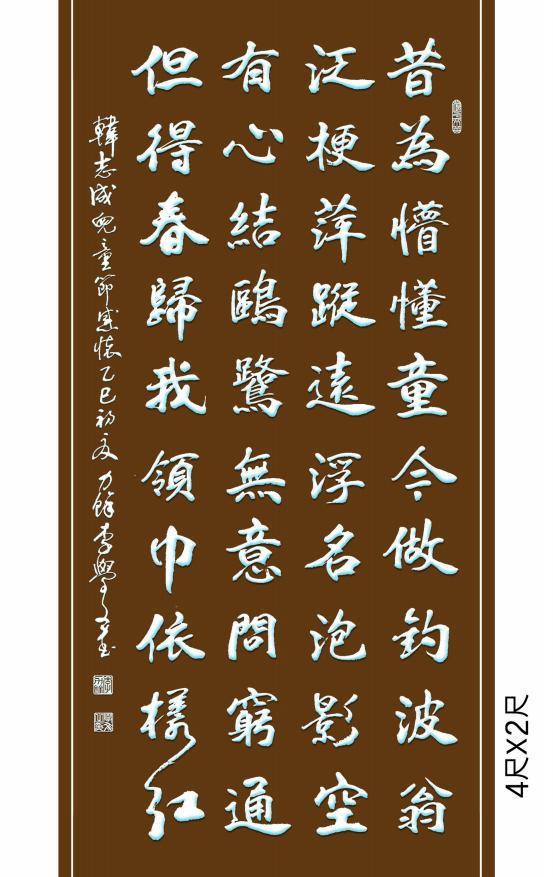 昔為懵懂童今做釣波翁
泛梗萍蹤遠浮名泡影空
有心結鷗鷺無意問窮通
但得春歸我領巾依樣紅
韓志成兒童節感懷乙巳初夏力餘李學
4尺X2尺